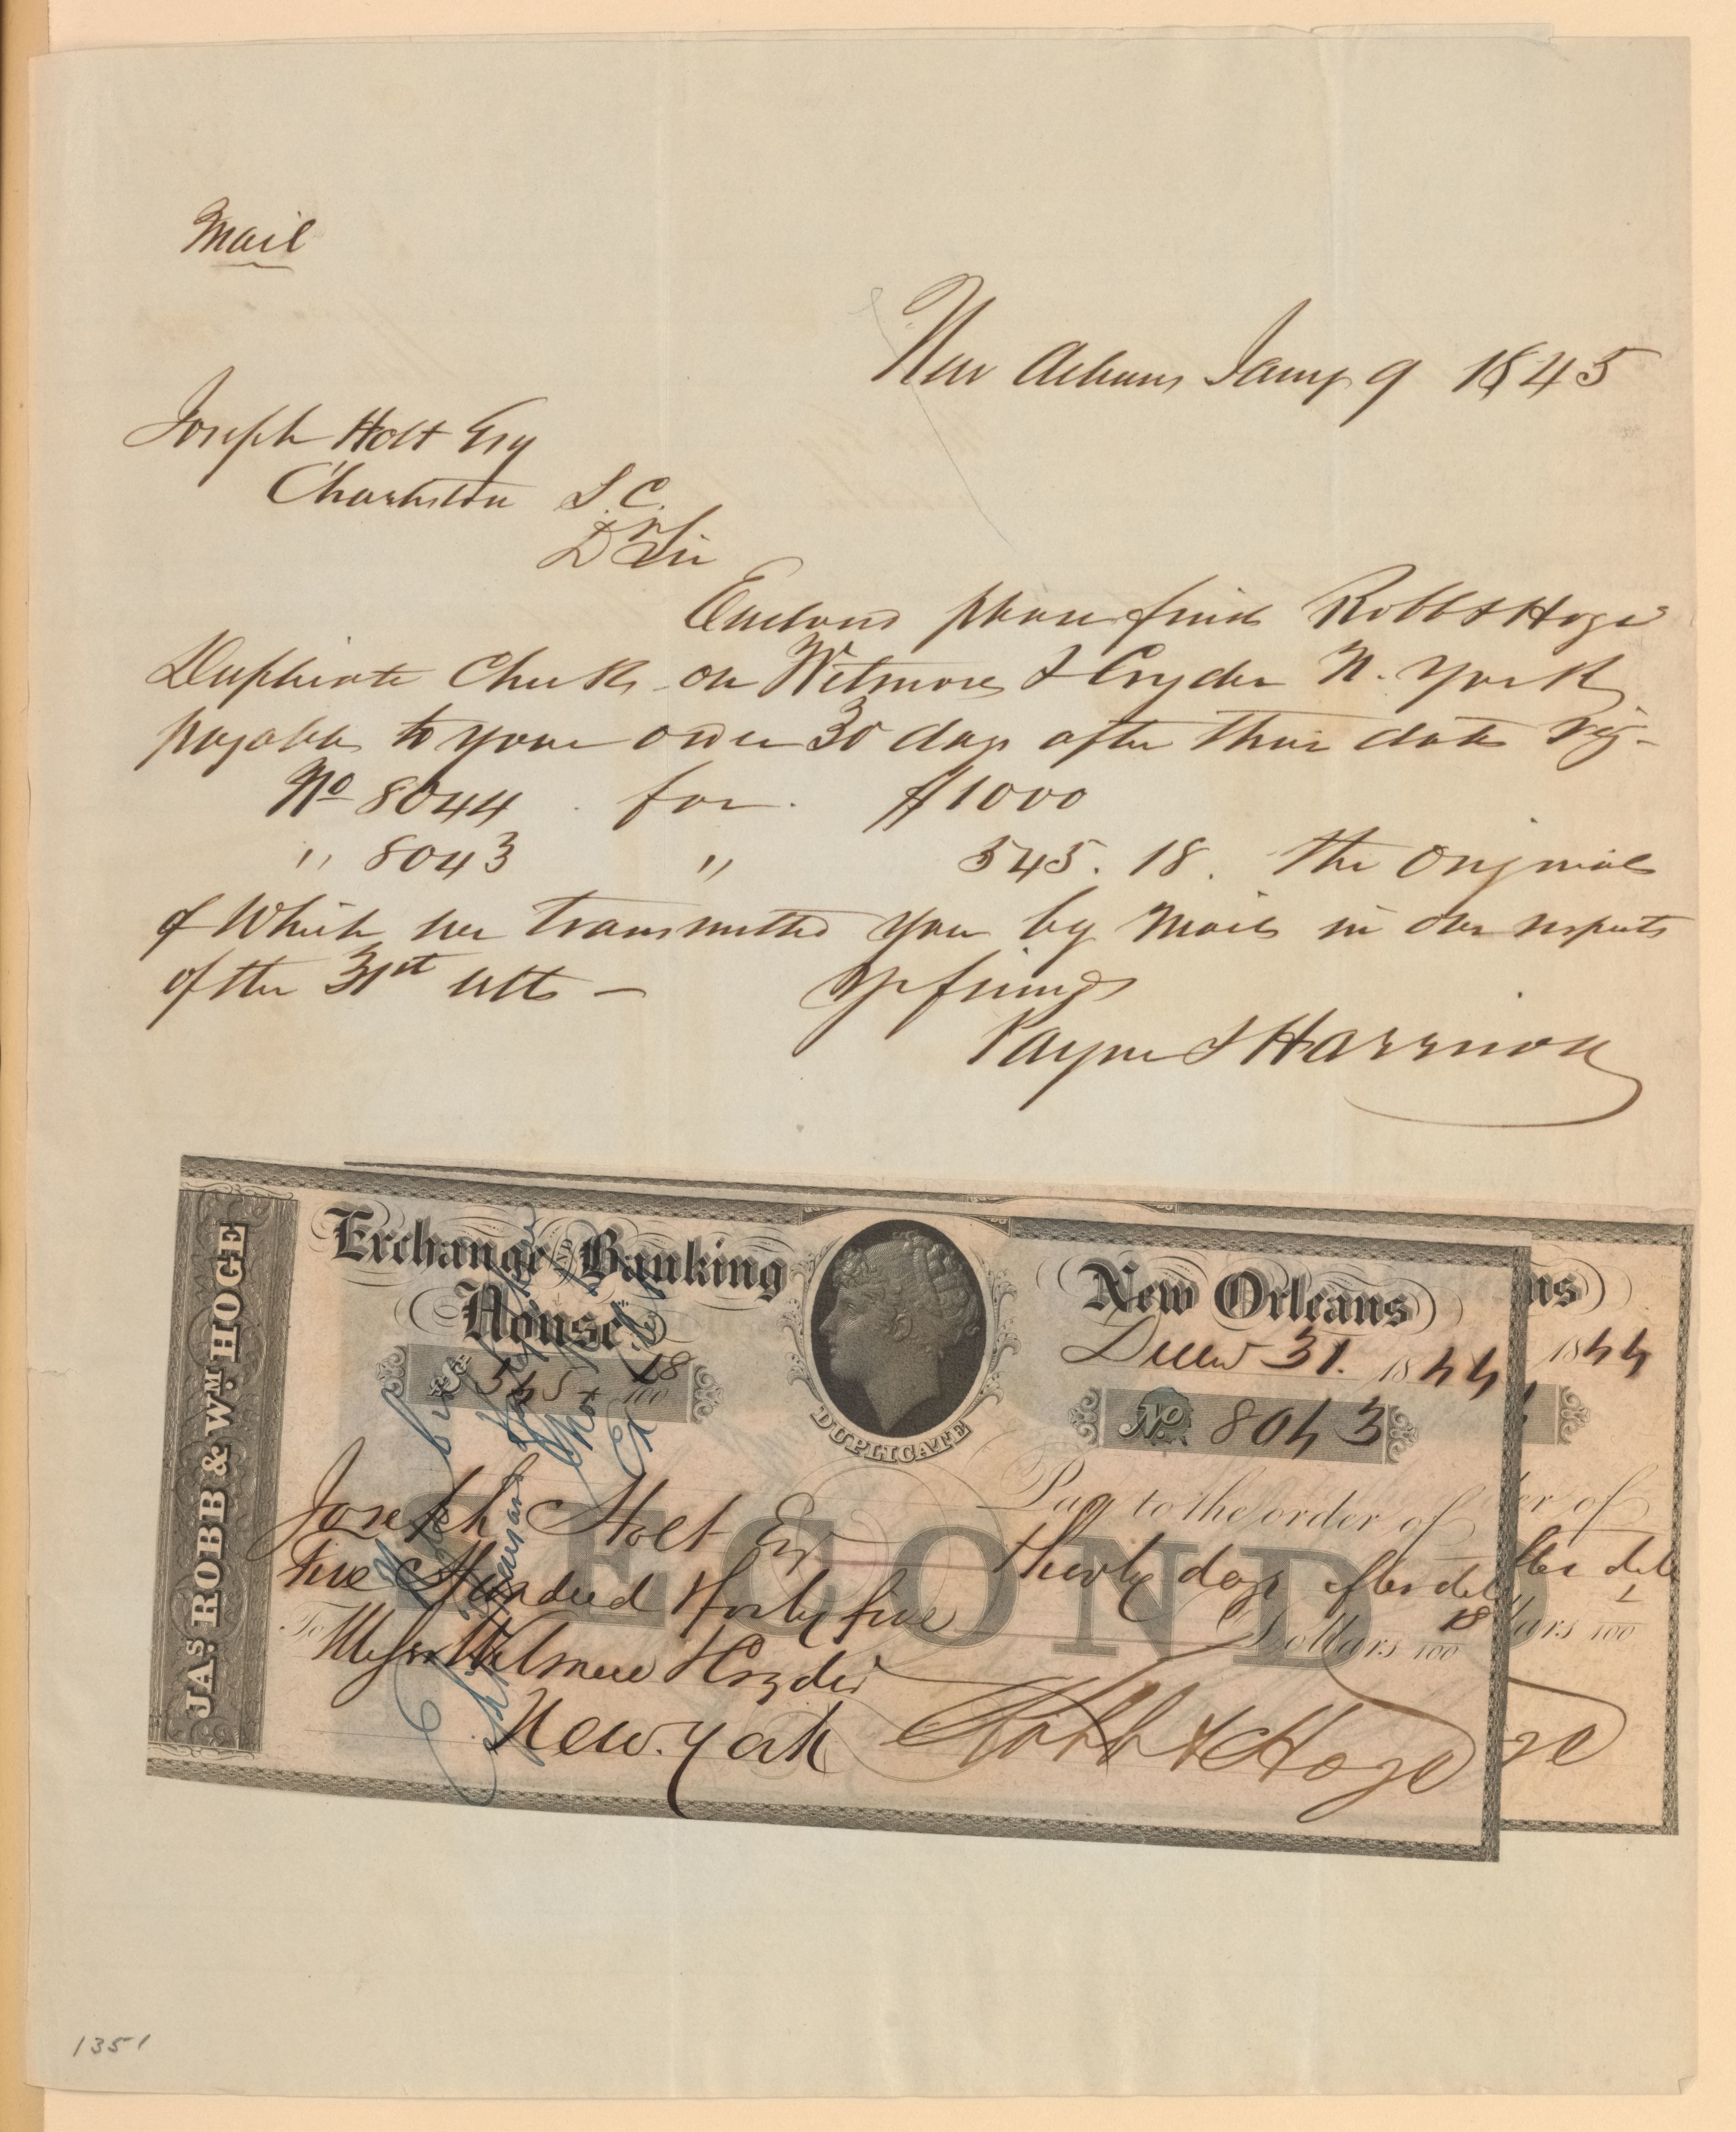 Mail
New Orleans Jany 9 1845
Joseph Holt Esq
Charleston S.C.
Dr Sir
Enclosed please find Robb & Hoge
Duplicate Checks on Wetmore & Cryder N. York
payable to your order 30 days after their date viz-
No 8044 for $1000
" 8043 " 545.18. the Originals
of Which we transmitted you by Mail in our respects
of the 31st ulto —
Yr friends
Payne & Harrison
JAS. ROBB & WM. HOGE
Exchange AND Banking
House.
New Orleans
ns
Decem 31. 1844
1844
$ 545 18/100
No 8043
DUPLICATE
SECOND
Pay to the order of
er of
Joseph Holt Esq Thirty days after date
fter date
Five Hundred Forty five Dollars 18/100
lars 100
To Messrs Wetmore & Cryder
New. York Robb & Hoge
ge
1351